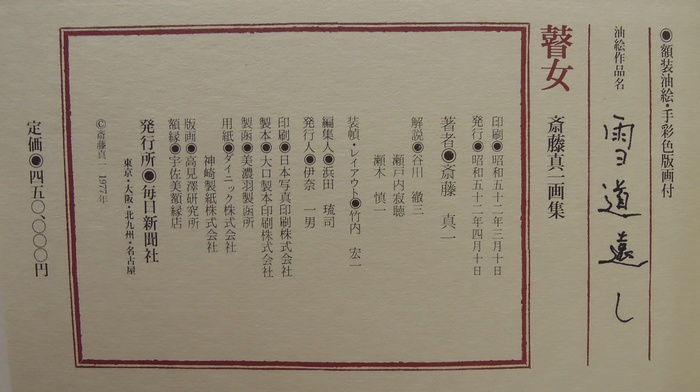 ◉額装油絵・手彩色版画付
油絵作品名
雪道遠し
瞽女 斎藤真一画集
印刷◉昭和五十二年三月十日
発行◉昭和五十二年四月十日
著者◉斎藤 真一
解説◉谷川 徹三
瀬戸内寂聴
瀬木 慎一
装幀・レイアウト◉竹内 宏一
編集人◉浜田 琉司
発行人◉伊奈 一男
印刷◉日本写真印刷株式会社
製本◉大口製本印刷株式会社
製函◉美濃羽製函所
用紙◉ダイニック株式会社
神崎製紙株式会社
版画◉高見澤研究所
額縁◉宇佐美額縁店
発行所◉毎日新聞社
東京・大阪・北九州・名古屋
©斎藤真一 1977年
定価◉四五〇、〇〇〇円